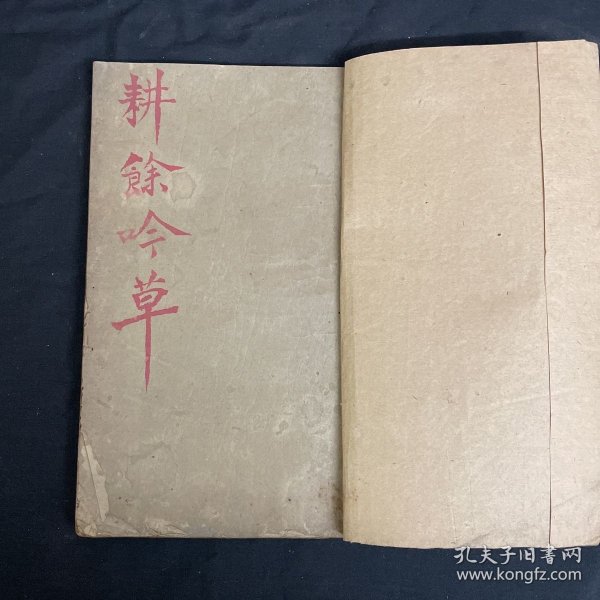 耕餘吟草
孔夫子旧書网
www.kongfz.com